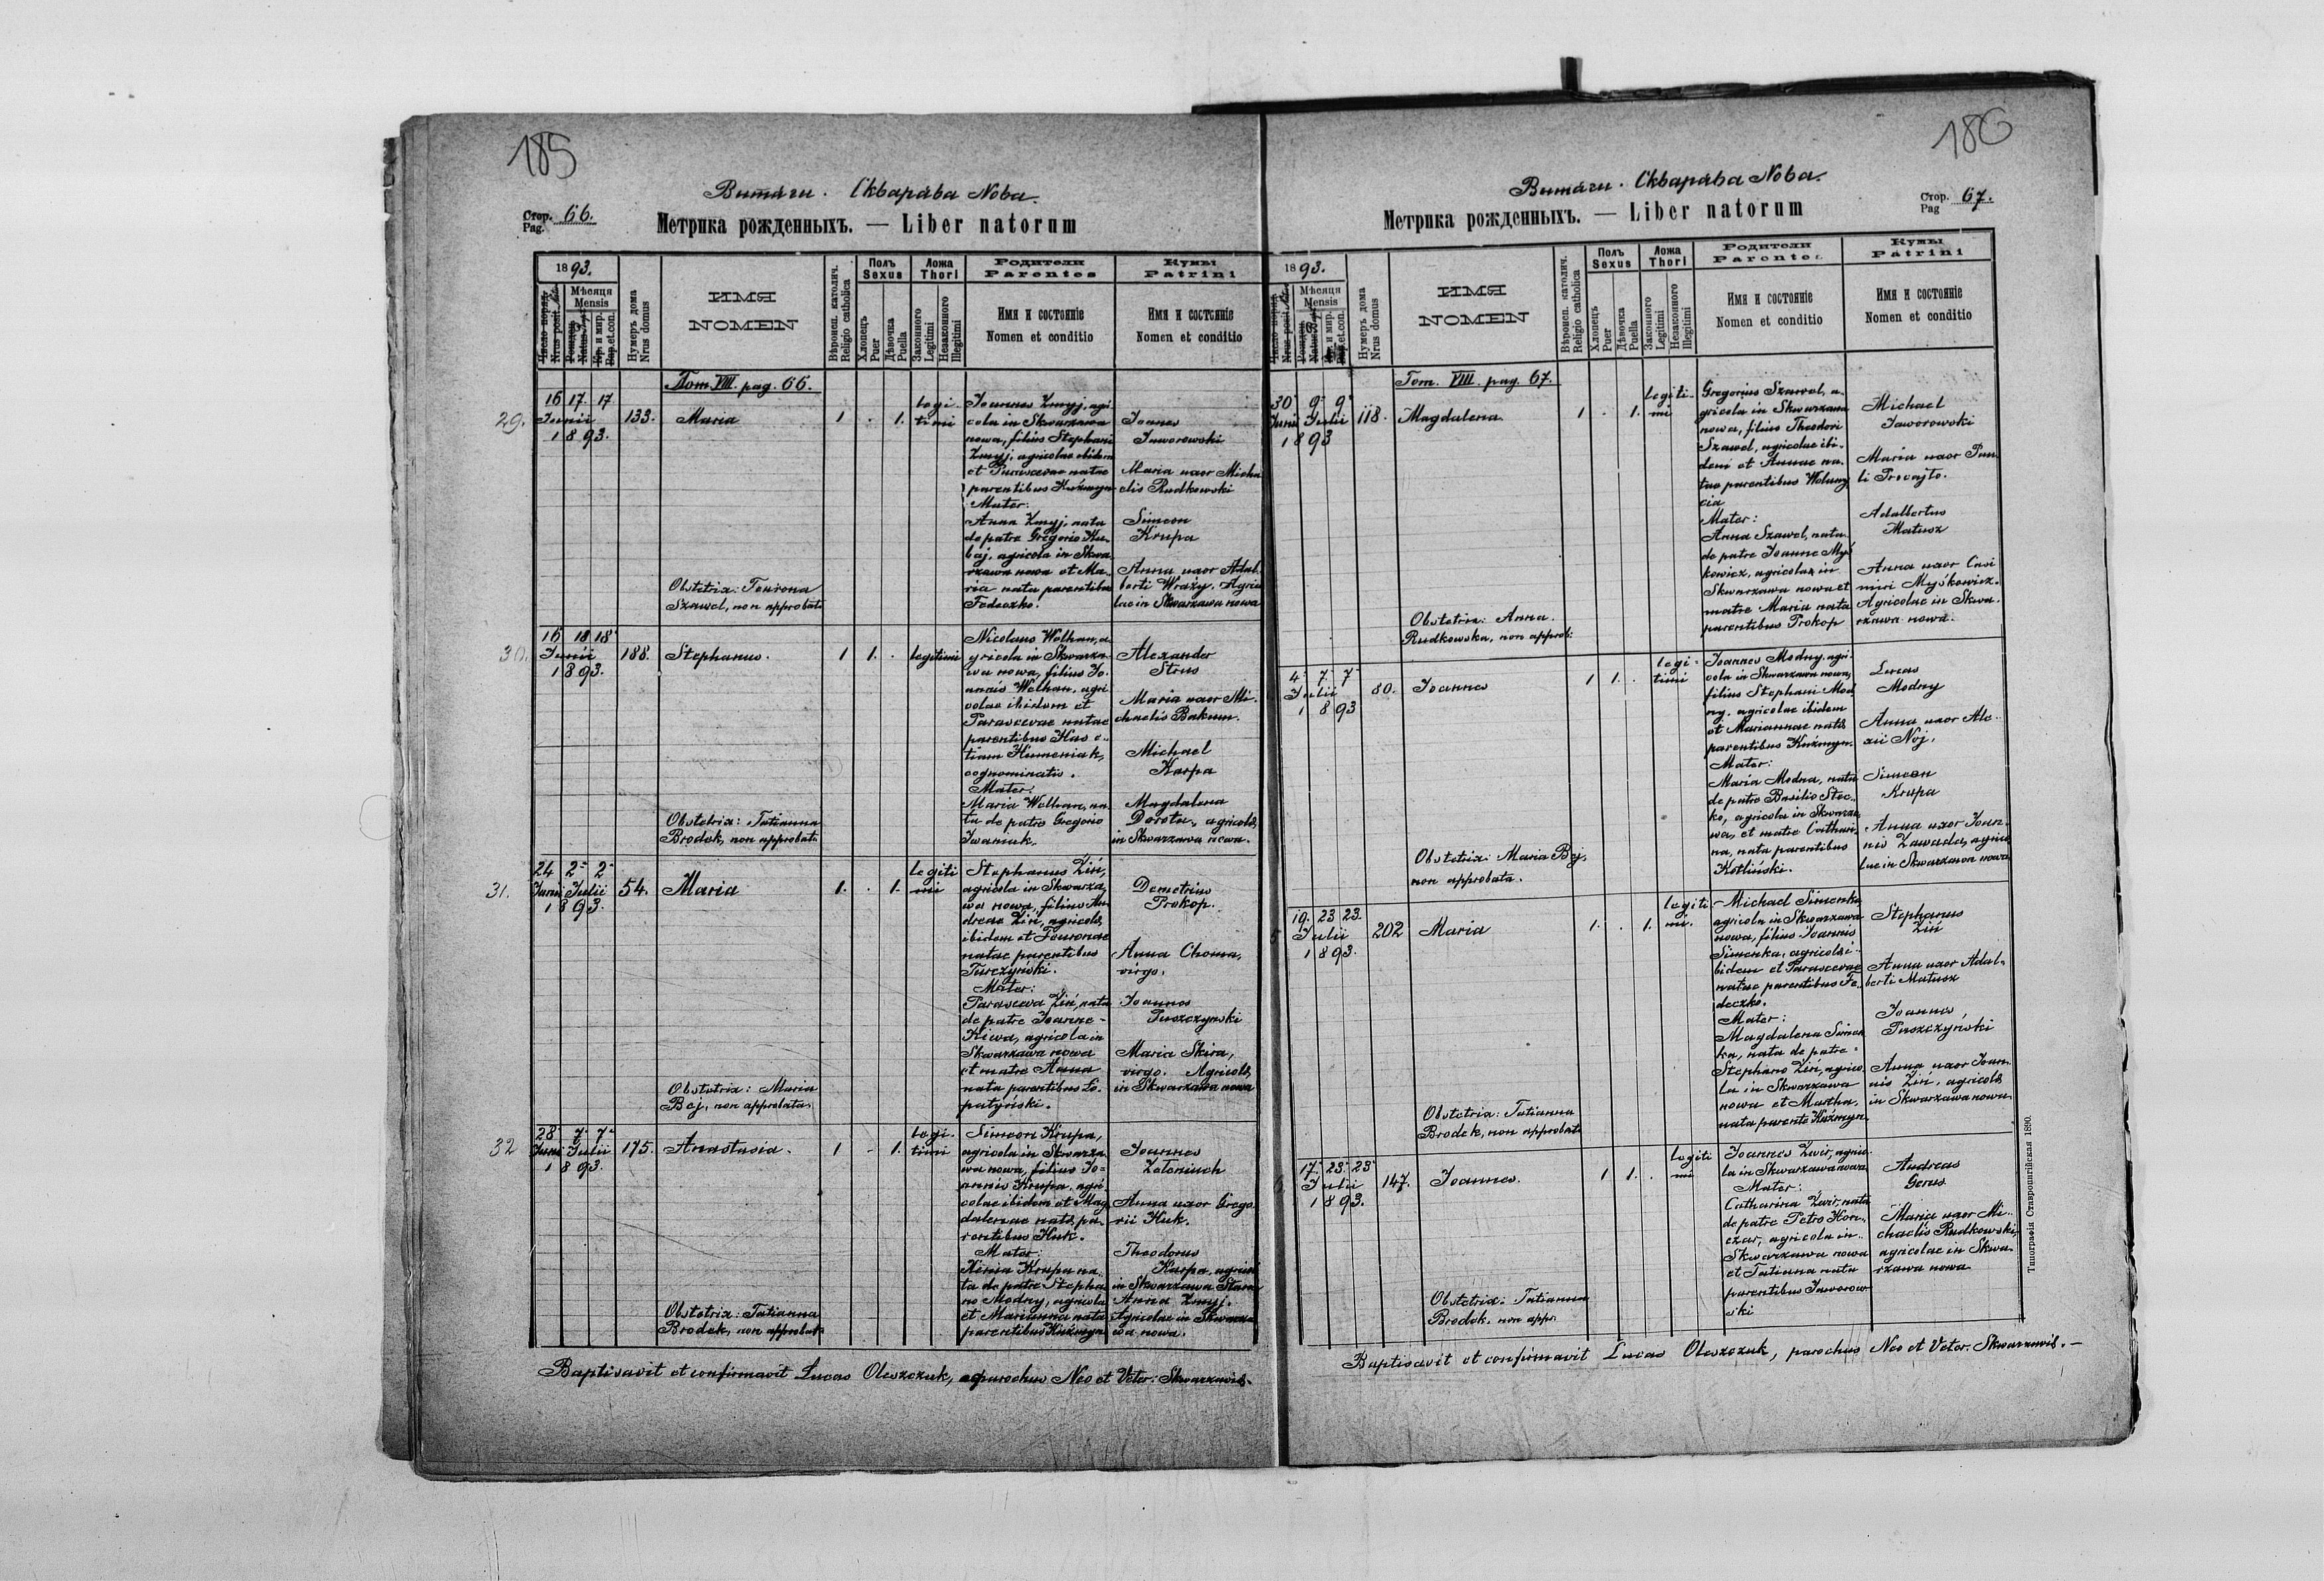 185
Витягu. Скварава Nова.
Стор. 66.
Pag.
Метрика рожденныхъ. — Liber natorum
1893.
Число поряд.
Nrus posit.
Мѣсяця
Mensis
Рожден.
Natus
Кр. и мир.
Bap. et con.
Нумеръ дома
Nrus domus
ИМЯ
NOMEN
Вѣроисп. католич.
Religio catholica
Полъ
Sexus
Хлопецъ
Puer
Дѣвочка
Puella
Ложа
Thori
Законного
Legitimi
Незаконного
Illegitimi
Родители
Parentes
Имя и состояніе
Nomen et conditio
Кумы
Patrini
Имя и состояніе
Nomen et conditio
Tom VIII. pag. 66.
29.
16 17 17
Junii
1893.
133.
Maria
1 . 1.
legi-
timi
Joannes Zmyj, agri
cola in Skwarzawa
nowa, filius Stephani
Zmyj, agricolae ibidem
et Parascevae natae
parentibus Kuźmyn
Mater:
Anna Zmyj, nata
de patre Gregorio Ku-
baj, agricola in Skwa
rzawa nowa et Ma-
ria nata parentibus
Fedeczko.
Joannes
Jaworowski
Maria uxor Micha
elis Rudkowski
Simeon
Krupa
Anna uxor Adal-
berti Wraży. Agrico
lae in Skwarzawa nowa
Obstetrix: Fenrona
Szawel, non approbata
30.
16 18 18
Junii
1893.
188.
Stephanus.
1 1. .
legitimi
Nicolaus Wolhan, a-
gricola in Skwarza-
wa nowa, filius Jo-
annis Wolhan, agri
colae ibidem et
Parascevae natae
parentibus Has e-
tiam Humeniak,
cognominatis.
Mater:
Maria Wolhan, na-
ta de patre Gregorio
Iwaniuk.
Alexander
Strus
Maria uxor Mi-
chaelis Bakum.
Michael
Karpa
Magdalena
Dorota, agricolae
in Skwarzawa nowa.
Obstetrix: Tatianna
Brodek, non approbata
31.
24 2 2
Junii Julii
1893.
54.
Maria
1. . 1.
legiti
mi
Stephanus Ziń,
agricola in Skwarza-
wa nowa, filius An-
dreae Ziń, agricolae
ibidem et Fenronae
natae parentibus
Turczyński.
Mater:
Parasceva Ziń, nata
de patre Joanne
Kiwa, agricola in
Skwarzawa nowa
et matre Anna
nata parentibus Lo-
patyński.
Demetrius
Prokop.
Anna Choma,
virgo.
Joannes
Puszczyński
Maria Skira,
virgo. Agricolae
in Skwarzawa nowa
Obstetrix: Maria
Bej, non approbata
32
28 7 7
Junii Julii
1893.
175.
Anastasia.
1 - 1.
legi-
timi
Simeon Krupa,
agricola in Skwarza
wa nowa, filius Jo-
annis Krupa, agri
colae ibidem et Mag
dalenae natae pa-
rentibus Huk.
Mater:
Xenia Krupa na-
ta de patre Stepha
no Modny, agricola
et Marianna nata
parentibus Kuźmyn
Joannes
Załeniuch
Anna uxor Grego
rii Huk.
Theodorus
Karpa, agricola
in Skwarzawa Stara
Anna Zmyj.
Agricolae in Skwarza
wa nowa.
Obstetrix: Tatianna
Brodek, non approbata
Baptisavit et confirmavit Lucas Oleszczuk, parochus Neo et Veter: Skwarzawis.
186
Витягu. Скварава Nова.
Стор. 67.
Pag
Метрика рожденныхъ. — Liber natorum
1893.
Мѣсяця
Mensis
Нумеръ дома
Nrus domus
ИМЯ
NOMEN
Вѣроисп. католич.
Religio catholica
Полъ
Sexus
Хлопецъ
Puer
Дѣвочка
Puella
Ложа
Thori
Законного
Legitimi
Незаконного
Illegitimi
Родители
Parentes
Имя и состояніе
Nomen et conditio
Кумы
Patrini
Имя и состояніе
Nomen et conditio
Tom. VIII. pag. 67.
30 9 9
Junii Julii
1893
118.
Magdalena
1 . 1.
legiti-
mi
Gregorius Szawel, a-
gricola in Skwarzawa
nowa, filius Theodori
Szawel, agricolae ibi-
dem et Annae na-
tae parentibus Wolczny
cia
Mater:
Anna Szawel, nata
de patre Joanne Myś
kowicz, agricola in
Skwarzawa nowa et
matre Maria nata
parentibus Prokop
Michael
Jaworowski
Maria uxor Pau
li Trovajto.
Adalbertus
Matusz
Anna uxor Casi
miri Myśkowicz.
Agricolae in Skwa-
rzawa nowa.
Obstetrix: Anna
Rudkowska, non approb:
4 7 7
Julii
1893
80.
Joannes
1 1. .
legi-
timi
Joannes Modny agri-
cola in Skwarzawa nowa,
filius Stephani Mod
ny, agricolae ibidem
et Mariannae natae
parentibus Kuźmyn.
Mater:
Maria Modna, nata
de patre Basilio Stec-
ko, agricola in Skwarza
wa, et matre Cathari-
na, nata parentibus
Kotliński.
Lucas
Modny
Anna uxor Ale-
xii Noj.
Simeon
Krupa
Anna uxor Joan-
nis Zawada, agrico
lae in Skwarzawa nowa
Obstetrix: Maria Bej,
non approbata.
19. 23 23.
Julii
1893.
202
Maria
1. . 1.
legiti-
mi.
Michael Simenka
agricola in Skwarzawa
nowa, filius Joannis
Simenka, agricolae i-
bidem et Parascevae
natae parentibus Fe-
deczko.
Mater:
Magdalena Simen
ka, nata de patre
Stephano Ziń, agrico
la in Skwarzawa
nowa et Martha,
nata parente Kuźmyn
Stephanus
Ziń
Anna uxor Adal-
berti Matusz
Joannes
Puszczyński
Anna uxor Joan-
nis Ziń, agricolae
in Skwarzawa nowa
Obstetrix: Tatianna
Brodek, non approbata
17. 23 23
Julii
1893.
147.
Joannes.
1 1. .
legiti
mi
Joannes Zwir, agrico-
la in Skwarzawa nowa
Mater:
Catharina Zwir, nata
de patre Petro Hon-
czar, agricola in
Skwarzawa nowa
et Tatiana nata
parentibus Jaworow
ski
Andreas
Gerus
Maria uxor Mi-
chaelis Rudkowski,
agricolae in Skwa-
rzawa nowa
Obstetrix: Tatianna
Brodek, non appr.
Baptisavit et confirmavit Lucas Oleszczuk, parochus Neo et Veter. Skwarzawis. —
Типографія Ставропигійская 1890.